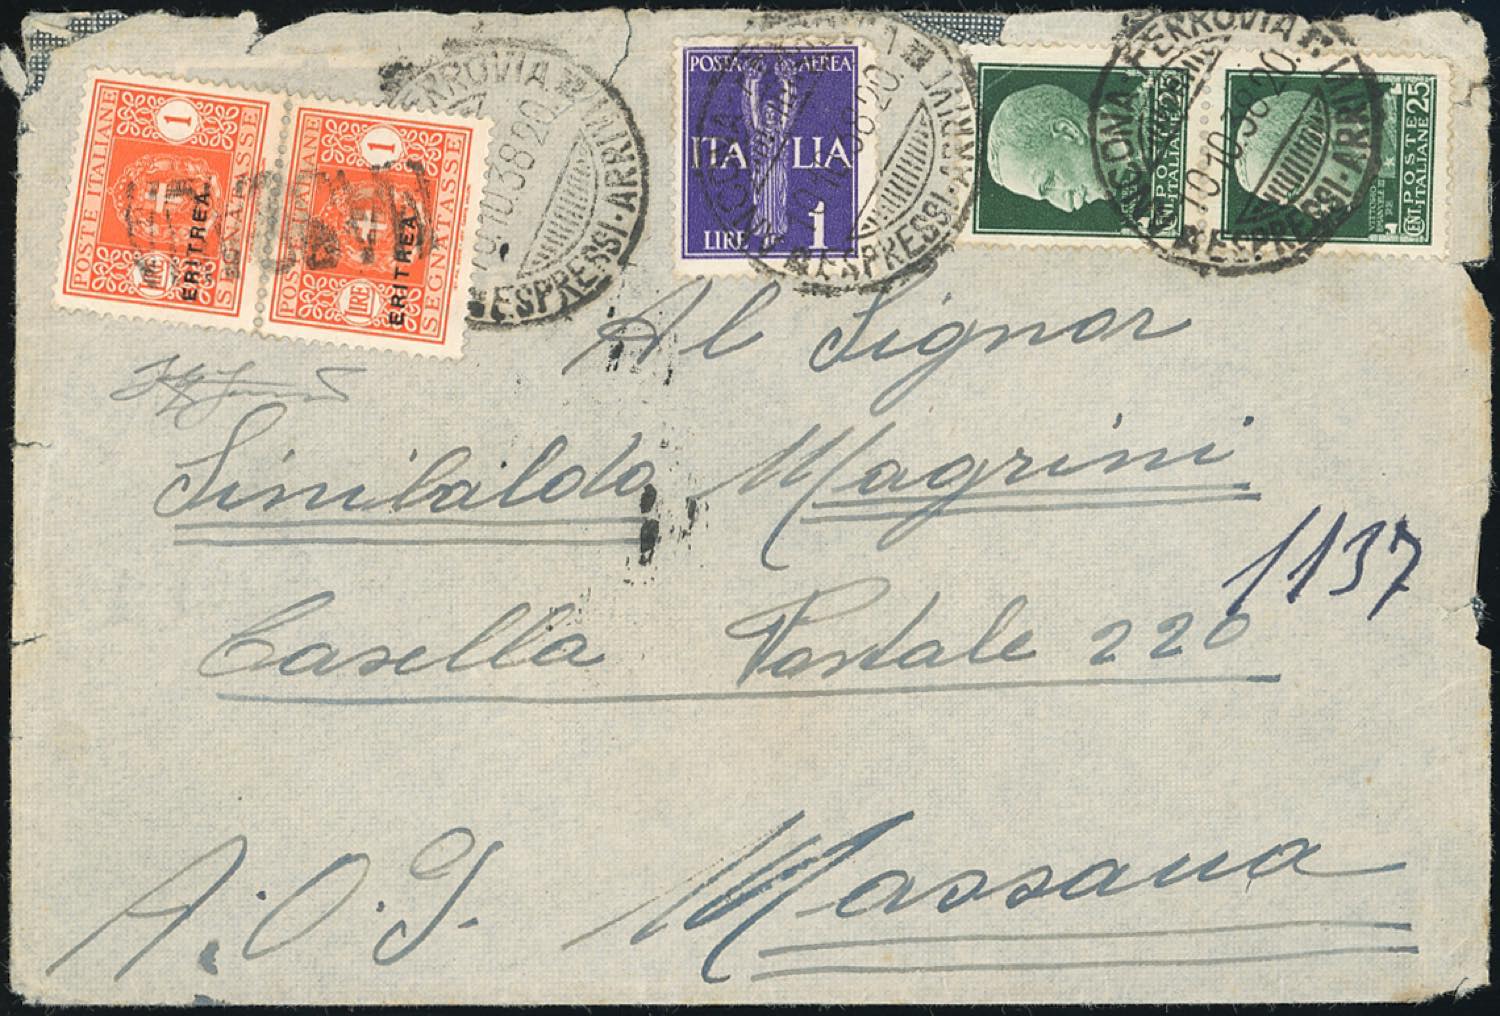 1 1
POSTE ITALIANE SEGNATASSE
POSTE ITALIANE SEGNATASSE
LIRE LIRE
ERITREA. ERITREA
FERROVIA
10.10.38 20
ARRIVI ESPRESSI
POSTA AEREA
ITALIA
LIRE 1
ANCONA FERROVIA
10.10.38 20.
ARRIVI ESPRESSI
POSTE ITALIANE
CENT 25
POSTE ITALIANE
CENT 25
VITTORIO EMANUELE III RE
ANCONA FERROVIA
10.10.38 20.
ARRIVI ESPRESSI
Al Signor
Sinibaldo Magrini
1137
Casella Postale 220
A.O.I. Massaua